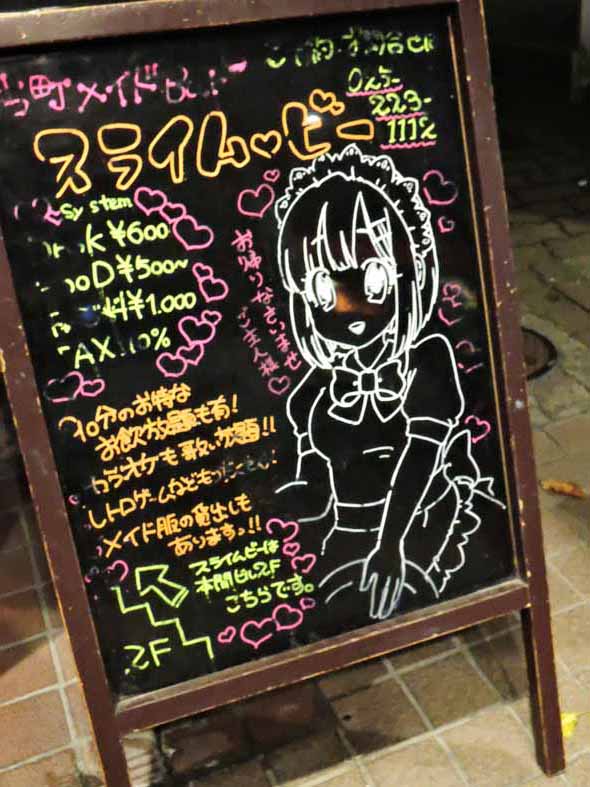 町メイドBar
ご予約・お問合せは
025-
223-
111
スライム♡ビー
System
¥600
¥500~
料¥1.000
TAX.10%
お帰りなさいませ
ご主人様♡
70分のお得な
お飲み放題も有!
カラオケも歌い放題!!
レトロゲームなども
メイド服の貸出しも
ありまぁっ!!
スライムビーは
本間ビル2F
こちらです。
2F